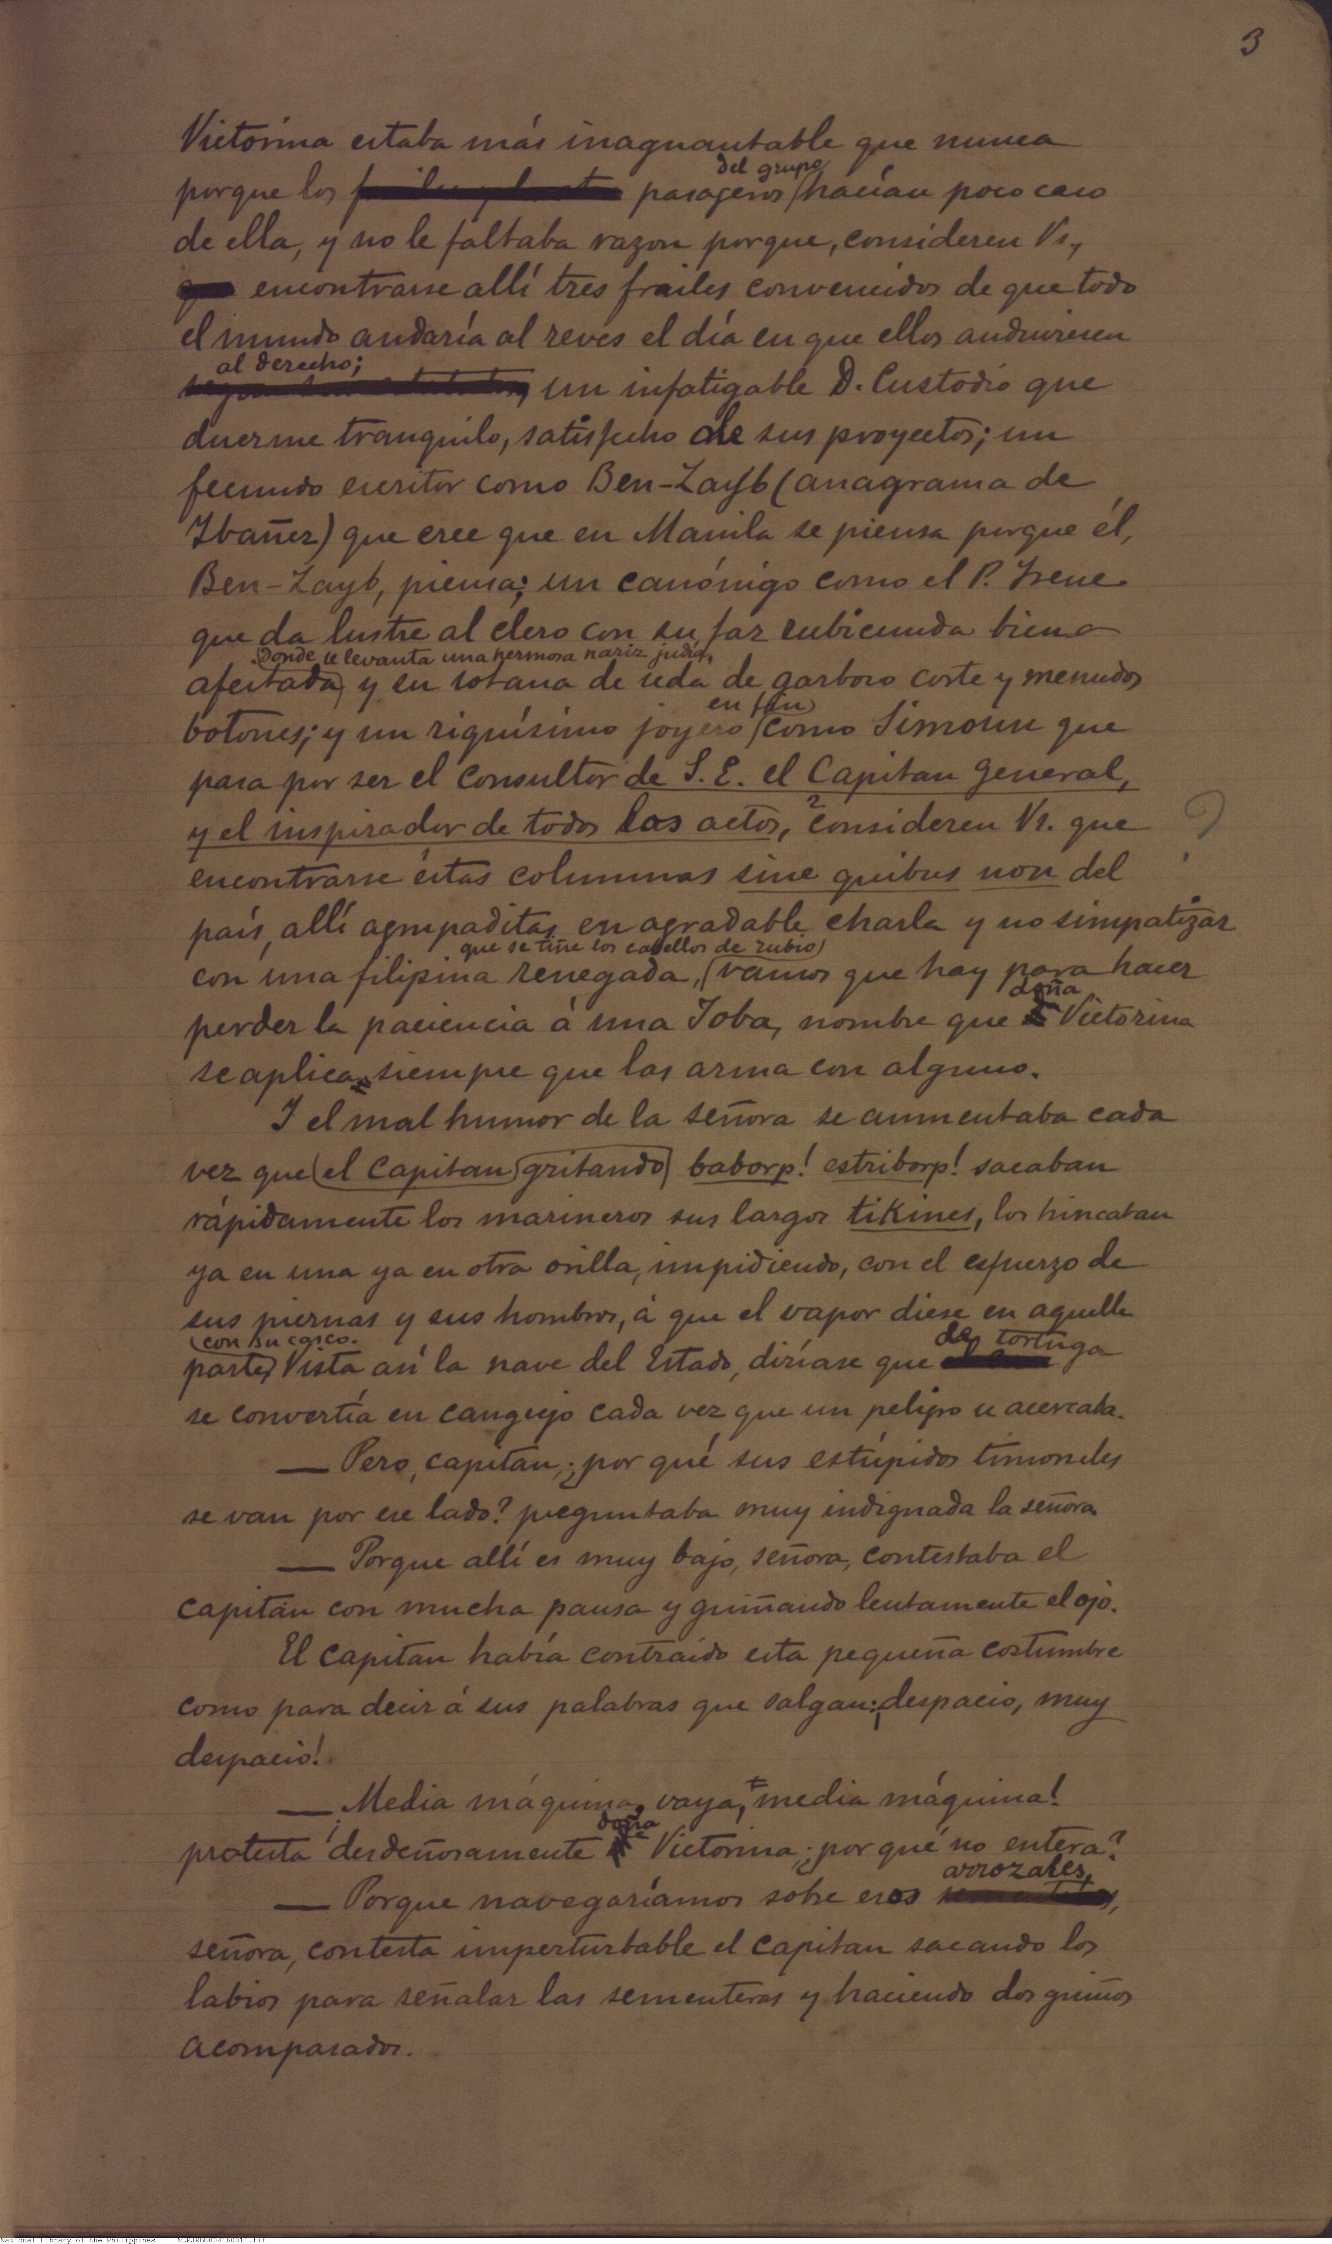 3
Victorina estaba más inaguantable que nunca
del grupo
porque los pasageros hacían poco caso
de ella, y no le faltaba razon porque, consideren Vs,
encontrarse allí tres frailes convencidos de que todo
el mundo andaría al reves el día en que ellos anduviesen
al derecho;
un infatigable D. Custodio que
duerme tranquilo, satisfecho de sus proyectos; un
fecundo escritor como Ben-Zayb (anagrama de
Ibañez) que cree que en Manila se piensa porque él,
Ben-Zayb, piensa; un canónigo como el P. Irene
que da lustre al clero con su faz rubicunda bien
donde se levanta una hermosa nariz judía,
afeitada, y su sotana de seda de garboso corte y menudos
en fin
botones; y un riquísimo joyero como Simoun que
pasa por ser el consultor de S. E. el Capitan General,
y el inspirador de todos los actos, consideren Vs. que
encontrarse éstas columnas sine quibus non del
país, allí agrupaditas en agradable charla y no simpatizar
que se tiñe los cabellos de rubio
con una filipina renegada, vamos que hay para hacer
doña
perder la paciencia á una Joba, nombre que Victorina
se aplica siempre que las arma con alguno.
Y el mal humor de la señora se aumentaba cada
vez que el capitan gritando baborp! estriborp! sacaban
rápidamente los marineros sus largos tikines, los hincaban
ya en una ya en otra orilla, impidiendo, con el esfuerzo de
sus piernas y sus hombros, á que el vapor diese en aquella
con su casco.
parte Vista así la nave del Estado, diríase que de tortuga
se convertía en cangrejo cada vez que un peligro se acercaba.
— Pero, capitan, ¿por qué sus estúpidos timoneles
se van por ese lado? preguntaba muy indignada la señora
— Porque allí es muy bajo, señora, contestaba el
capitan con mucha pausa y guiñando lentamente el ojo.
El capitan había contraido esta pequeña costumbre
como para decir á sus palabras que salgan: ¡despacio, muy
despacio!
— ¡Media máquina, vaya, media máquina!
doña
protesta desdeñosamente Victorina, ¿por qué no entera?
arrozales,
— Porque navegaríamos sobre esos
señora, contesta imperturbable el capitan sacando los
labios para señalar las sementeras y haciendo dos guiños
acompasados.